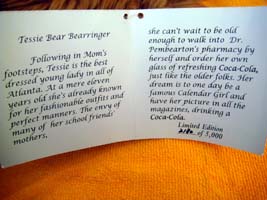 Tessie Bear Bearringer
Following in Mom's
footsteps, Tessie is the best
dressed young lady in all of
Atlanta. At a mere eleven
years old she's already known
for her fashionable outfits and
perfect manners. The envy of
many of her school friends'
mothers,
she can't wait to be old
enough to walk into Dr.
Pembearton's pharmacy by
herself and order her own
glass of refreshing Coca-Cola,
just like the older folks. Her
dream is to one day be a
famous Calendar Girl and
have her picture in all the
magazines, drinking a
Coca-Cola.
Limited Edition
of 5,000